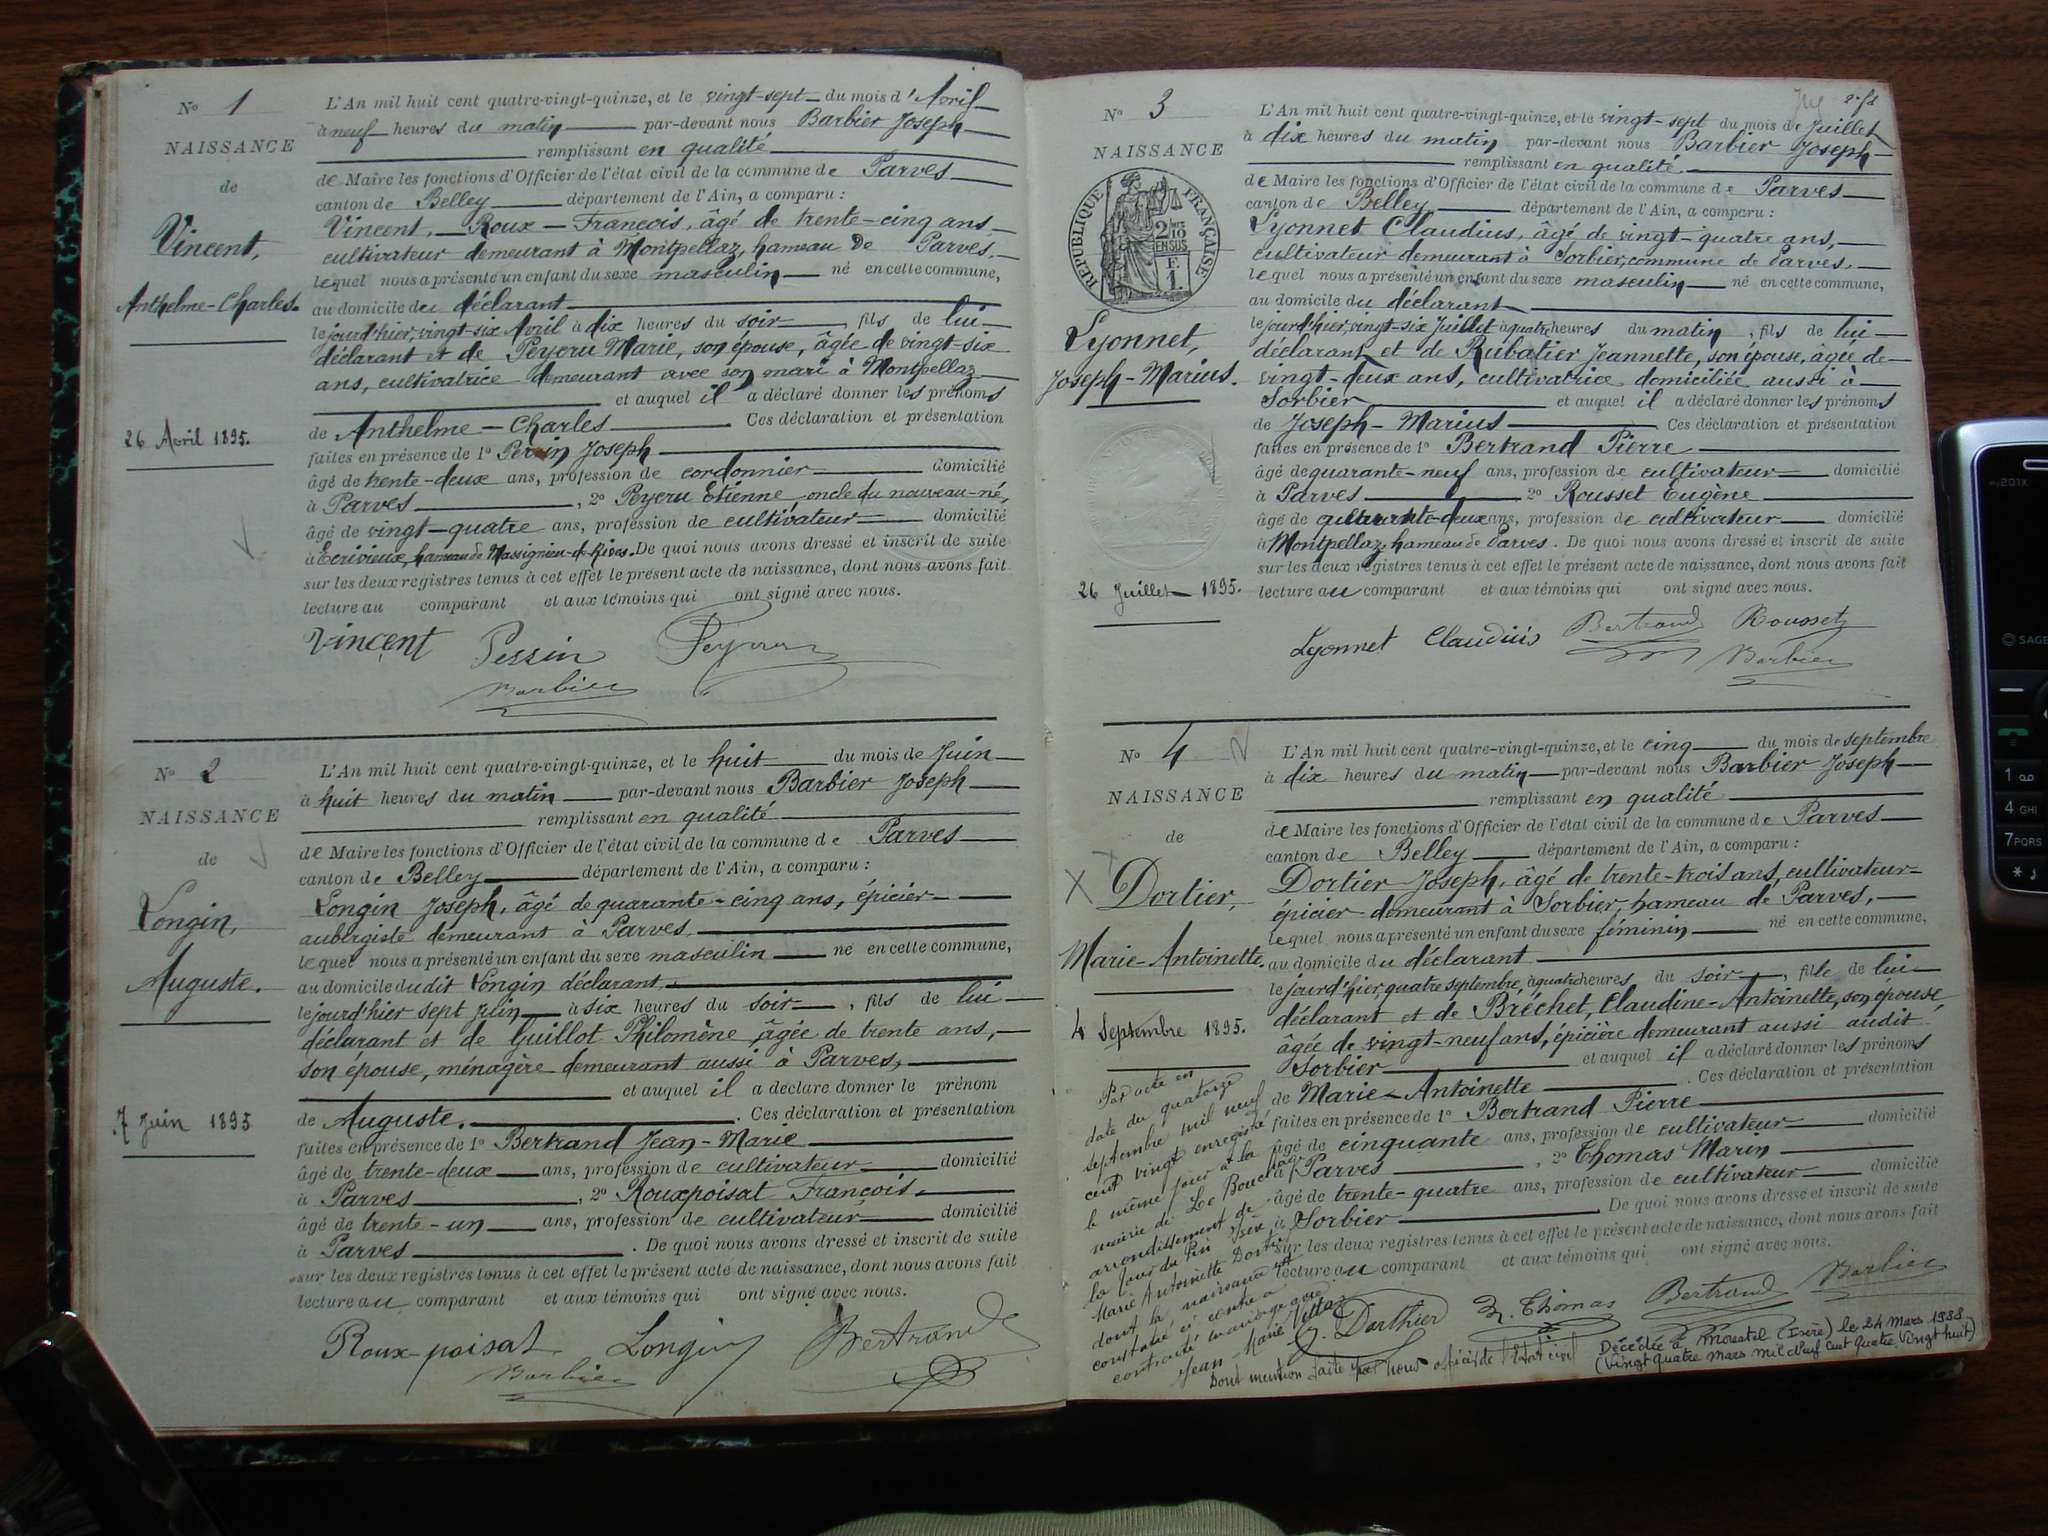 N° 1
NAISSANCE
de
Vincent,
Anthelme-Charles.
26 Avril 1895.
L'An mil huit cent quatre-vingt-quinze, et le vingt-sept du mois d'Avril
à neuf heures du matin par-devant nous Barbier Joseph
remplissant en qualité
de Maire les fonctions d'Officier de l'état civil de la commune de Parves
canton de Belley département de l'Ain, a comparu :
Vincent, Roux-François, âgé de trente-cinq ans
cultivateur demeurant à Montpellaz, hameau de Parves,
lequel nous a présenté un enfant du sexe masculin né en cette commune,
au domicile du déclarant
le jourd'hier, vingt-six Avril à dix heures du soir, fils de lui
déclarant et de Peycru Marie, son épouse, âgée de vingt-six
ans, cultivatrice demeurant avec son mari à Montpellaz
et auquel il a déclaré donner les prénoms
de Anthelme-Charles Ces déclaration et présentation
faites en présence de 1° Joseph
âgé de trente-deux ans, profession de cordonnier domicilié
à Parves, 2° Peycru Etienne, oncle du nouveau-né,
âgé de vingt-quatre ans, profession de cultivateur domicilié
à Ecrivieux, hameau de Massignieu-de-Rives. De quoi nous avons dressé et inscrit de suite
sur les deux registres tenus à cet effet le présent acte de naissance, dont nous avons fait
lecture au comparant et aux témoins qui ont signé avec nous.
Vincent Pessin Peycru
Barbier
N° 2
NAISSANCE
de
Longin,
Auguste.
7 Juin 1895
L'An mil huit cent quatre-vingt-quinze, et le huit du mois de Juin
à huit heures du matin par-devant nous Barbier Joseph
remplissant en qualité
de Maire les fonctions d'Officier de l'état civil de la commune de Parves
canton de Belley département de l'Ain, a comparu :
Longin Joseph, âgé de quarante-cinq ans, épicier-
aubergiste demeurant à Parves
lequel nous a présenté un enfant du sexe masculin né en cette commune,
au domicile dudit Longin déclarant
le jourd'hier sept juin à six heures du soir, fils de lui
déclarant et de Guillot Philomène âgée de trente ans,
son épouse, ménagère demeurant aussi à Parves,
et auquel il a déclaré donner le prénom
de Auguste. Ces déclaration et présentation
faites en présence de 1° Bertrand Jean-Marie
âgé de trente-deux ans, profession de cultivateur domicilié
à Parves, 2° Rouxpoisat François,
âgé de trente-un ans, profession de cultivateur domicilié
à Parves. De quoi nous avons dressé et inscrit de suite
sur les deux registres tenus à cet effet le présent acte de naissance, dont nous avons fait
lecture au comparant et aux témoins qui ont signé avec nous.
Roux-poisat Longin Bertrand
Barbier
N° 3
NAISSANCE
RÉPUBLIQUE FRANÇAISE
2/10
EN SUS
F.
1.
Lyonnet,
Joseph-Marius.
26 Juillet 1895.
L'An mil huit cent quatre-vingt-quinze, et le vingt-sept du mois de Juillet
à dix heures du matin par-devant nous Barbier Joseph
remplissant en qualité
de Maire les fonctions d'Officier de l'état civil de la commune de Parves
canton de Belley département de l'Ain, a comparu :
Lyonnet Claudius, âgé de vingt-quatre ans,
cultivateur demeurant à Sorbier, commune de Parves,
lequel nous a présenté un enfant du sexe masculin né en cette commune,
au domicile du déclarant
le jourd'hier, vingt-six Juillet à quatre heures du matin, fils de lui
déclarant et de Rubatier Jeannette, son épouse, âgée de
vingt-deux ans, cultivatrice domiciliée aussi à
Sorbier et auquel il a déclaré donner les prénoms
de Joseph-Marius Ces déclaration et présentation
faites en présence de 1° Bertrand Pierre
âgé de quarante-neuf ans, profession de cultivateur domicilié
à Parves 2° Rousset Eugène
âgé de quarante-deux ans, profession de cultivateur domicilié
à Montpellaz, hameau de Parves. De quoi nous avons dressé et inscrit de suite
sur les deux registres tenus à cet effet le présent acte de naissance, dont nous avons fait
lecture au comparant et aux témoins qui ont signé avec nous.
Lyonnet Claudius Bertrand Rousset
Barbier
N° 4
NAISSANCE
de
Dortier,
Marie-Antoinette.
4 Septembre 1895.
L'An mil huit cent quatre-vingt-quinze, et le cinq du mois de septembre
à dix heures du matin par-devant nous Barbier Joseph
remplissant en qualité
de Maire les fonctions d'Officier de l'état civil de la commune de Parves
canton de Belley département de l'Ain, a comparu :
Dortier Joseph, âgé de trente-trois ans, cultivateur-
épicier demeurant à Sorbier, hameau de Parves,
lequel nous a présenté un enfant du sexe féminin né en cette commune,
au domicile du déclarant
le jourd'hier, quatre septembre, à quatre heures du soir, fille de lui
déclarant et de Bréchet, Claudine-Antoinette, son épouse
âgée de vingt-neuf ans, épicière demeurant aussi audit
Sorbier et auquel il a déclaré donner les prénoms
de Marie-Antoinette. Ces déclaration et présentation
faites en présence de 1° Bertrand Pierre
âgé de cinquante ans, profession de cultivateur domicilié
à Parves, 2° Thomas Marin
âgé de trente-quatre ans, profession de cultivateur domicilié
à Sorbier. De quoi nous avons dressé et inscrit de suite
sur les deux registres tenus à cet effet le présent acte de naissance, dont nous avons fait
lecture au comparant et aux témoins qui ont signé avec nous.
J. Dorthier Thomas Bertrand Barbier
Par acte en
date du quatorze
septembre mil neuf
cent vingt enregistré
le même jour à la
mairie de Le Bouchage
arrondissement de
la Tour du Pin Isère
Marie Antoinette Dortier
dont la naissance est
constatée ci contre a
contracté mariage avec
Jean Marie Vettaz
Dont mention faite par nous officier de l'état civil
Décédée à Morestel (Isère) le 24 Mars 1988
(vingt quatre Mars mil neuf cent quatre vingt huit)
my201X
SAGE
1
4 GHI
7 PQRS
*